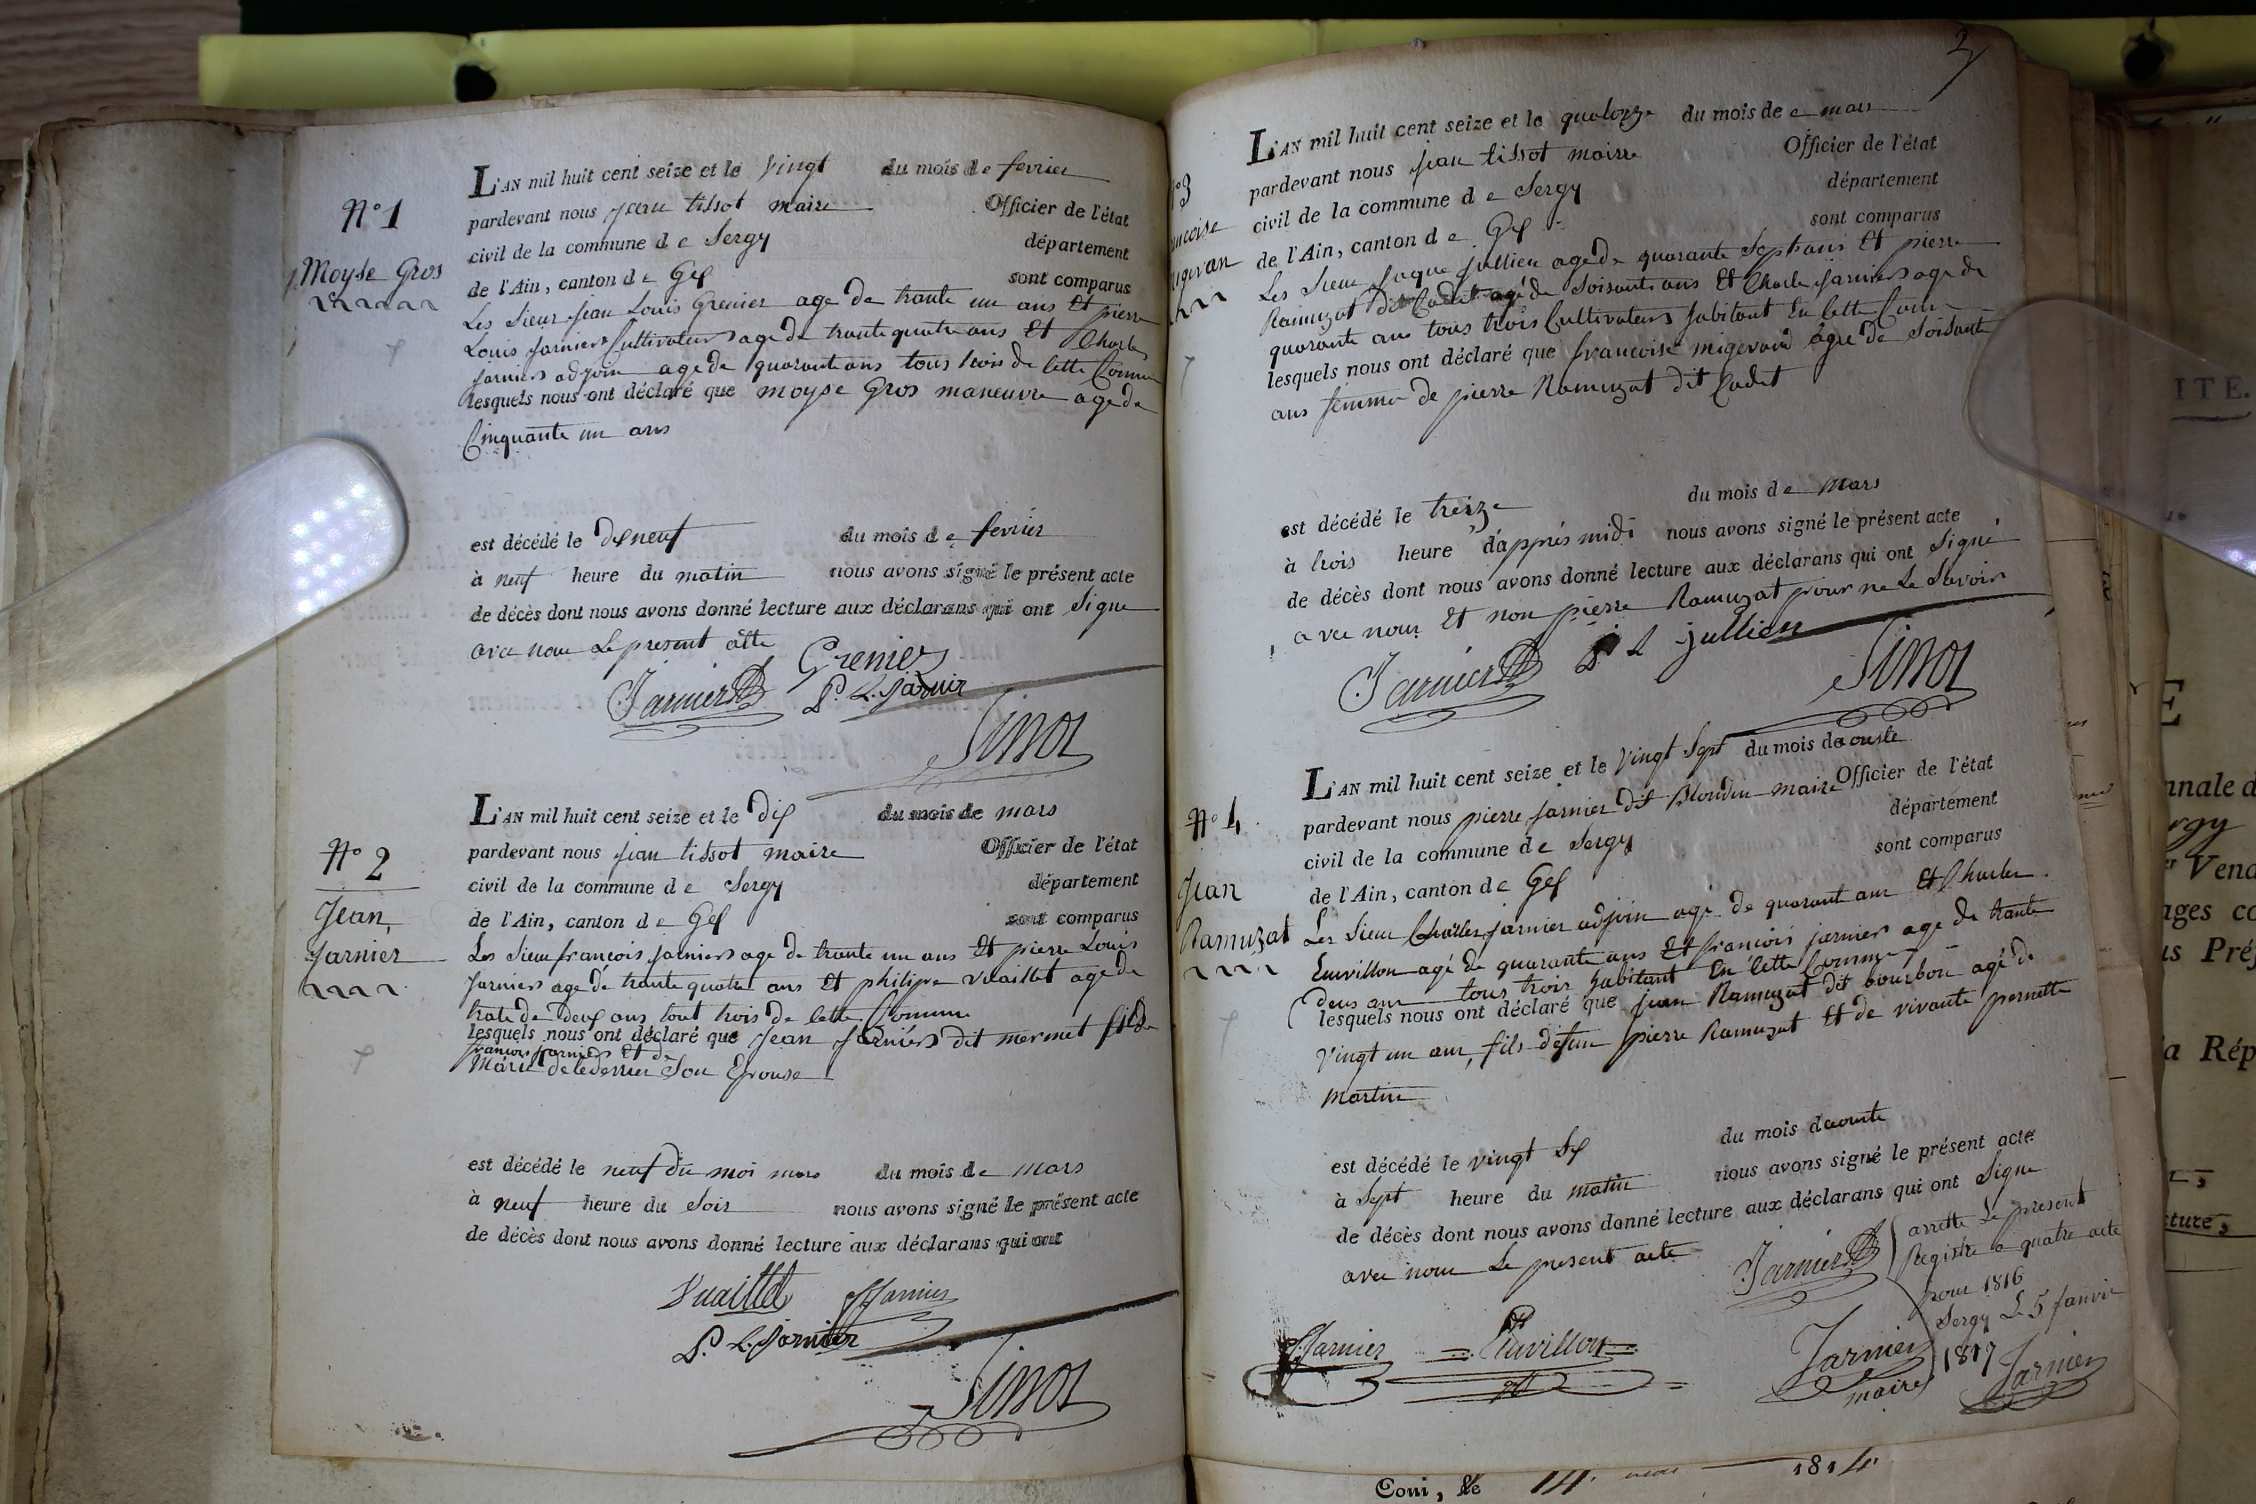 N° 1
Moyse Gros
L'AN mil huit cent seize et le vingt du mois de fevrier
pardevant nous jean tissot maire Officier de l'état
civil de la commune de Sergy département
de l'Ain, canton de Gex sont comparus
Les Sieur jean Louis Grenier age de trante un ans Et pierre
Louis jarnier Cultivateurs age de trante quatre ans Et Charles
jarnier adjoin age de quarante ans tous trois de cette Commune
lesquels nous ont déclaré que moyse Gros maneuvre age de
Cinquante un ans
est décédé le dixneuf du mois de fevrier
à neuf heure du matin nous avons signé le présent acte
de décès dont nous avons donné lecture aux déclarans qui ont Signe
avec nous Le present acte
Jarnier Grenier
P. L. jarnier
Tissot
N° 2
Jean
jarnier
L'AN mil huit cent seize et le dix du mois de mars
pardevant nous jean tissot maire Officier de l'état
civil de la commune de Sergy département
de l'Ain, canton de Gex sont comparus
Les Sieur françois jarniers age de trante un ans Et pierre Louis
jarniers age de trante quatre ans Et philipe vuaillet age de
trate de deux ans tout trois de cette Commune
lesquels nous ont déclaré que jean jarniers dit mermet fils de
françois jarniers Et de
Marie delederrier Son Epouse
est décédé le neuf du moi mars du mois de mars
à neuf heure du Soir nous avons signé le présent acte
de décès dont nous avons donné lecture aux déclarans qui ont
Vuaillet jarnier
P. L. jarnier
Tissot
2
L'AN mil huit cent seize et le quatorze du mois de mars
pardevant nous jean tissot maire Officier de l'état
civil de la commune de Sergy département
de l'Ain, canton de Gex sont comparus
Les Sieur jaque jullien age de quarante Sept ans Et pierre
Ramuzat dit Cadet agé de Soisante ans Et Charle jarniers age de
quarante ans tous trois Cultivateurs habitant En cette Comune
lesquels nous ont déclaré que françoise migevan âgée de Soisante
ans femme de pierre Ramuzat dit Cadet
est décédé le treize du mois de mars
à trois heure d'apprés midi nous avons signé le présent acte
de décès dont nous avons donné lecture aux déclarans qui ont Signé
avec nous Et non pierre Ramuzat pour ne Le Savoir
Jarnier jullien Tissot
N° 4
Jean
Ramuzat
L'AN mil huit cent seize et le vingt Sept du mois daouste
pardevant nous pierre jarnier dit Blondin maire Officier de l'état
civil de la commune de Sergy département
de l'Ain, canton de Gex sont comparus
Les Sieur Charles jarnier adjoin agé de quarant ans Et Charles
Emvillon agé de quarante ans Et françois jarniers age de trante
deux ans tous trois habitant En cette Commune
lesquels nous ont déclaré que jean Ramuzat dit bourbon agé de
Vingt un ans, fils défun pierre Ramuzat Et de vivante pernette
martin
est décédé le vingt Six du mois daouste
à Sept heure du matin nous avons signé le présent acte
de décès dont nous avons donné lecture aux déclarans qui ont Signe
avec nous Le present acte
Jarnier
arrette Le present
Registre a quatre acte
pour 1816
Sergy Le 5 Janvier
1817
Jarnier Emvillon Jarnier
maire
Jarnier
Coni, le 14 1814